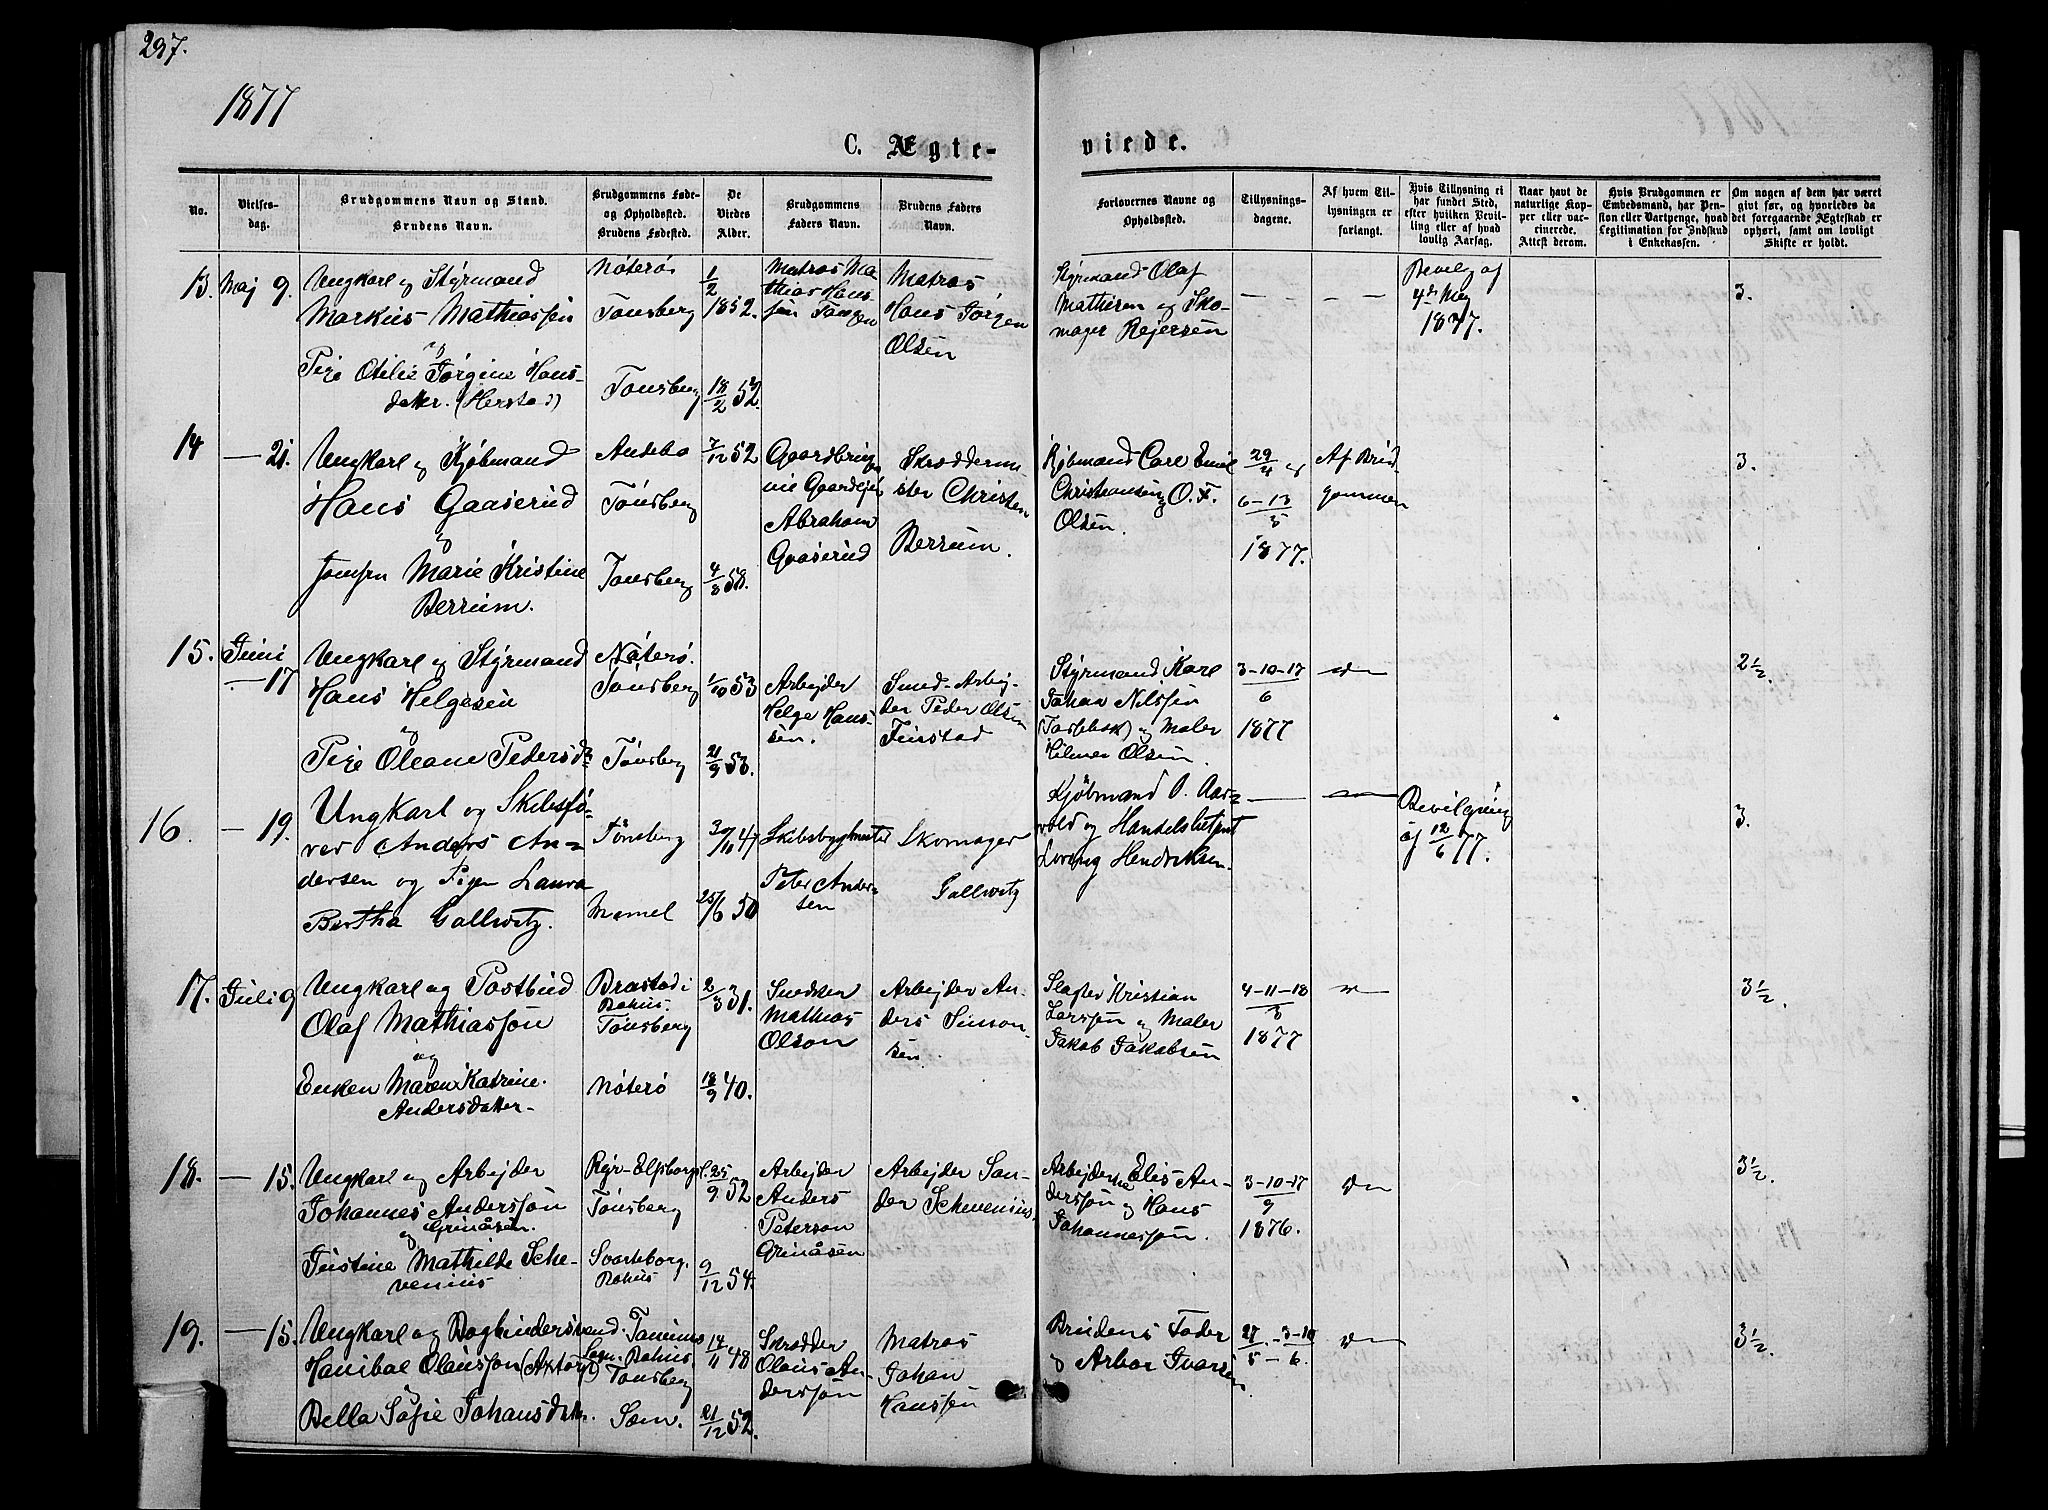 297.
1877
C. Ægte-
viede.
No.
Vielses-
dag.
Brudgommens Navn og Stand.
Brudens Navn.
Brudgommens Føde-
og Opholdssted.
Brudens Fødested.
De
Viedes
Alder.
Brudgommens
Faders Navn.
Brudens Faders
Navn.
Forlovernes Navne og
Opholdssted.
Tillysnings-
dagene.
Af hvem Til-
lysningen er
forlangt.
Hvis Tillysning ei
har fundet Sted,
efter hvilken Bevil-
ling eller af hvad
lovlig Aarsag.
Naar havt de
naturlige Kop-
per eller vac-
cinerede.
Attest derom.
Hvis Brudgommen er
Embedsmand, har Pen-
sion eller Vartpenge, hvad
Legitimation for Indskud
i Enkekassen.
Om nogen af dem har været
givt før, og hvorledes da
det foregaaende Ægteskab er
ophørt, samt om lovligt
Skifte er holdt.
13. Maj 9.
Ungkarl og Styrmand
Markus Mathiassen
og
Pige Otilie Jørgine Hans-
datter. (Herstad)
Nøterø
Tønsberg
Tønsberg
1/2
1852.
18/2 52.
Matros Ma-
thias Hans-
sen Tangen
Matros
Hans Jørgen
Olsen
Styrmand Olaf
Mathisen og Sko-
mager Rejersen
— — —
— —
Bevilg af
4de Maj
1877.
3.
14 — 21.
Ungkarl og Kjøbmand
Hans Gaaserud
og
Jomfru Marie Kristine
Berrum.
Andebu
Tönsberg
Tønsberg
7/12 52
4/8 58.
Abraham
Gaaserud
Skrædderme
ster Christen
Berrum.
Kjøbmand Carl Emil
Christiansen og O. F.
Olsen.
29/4 og
6-13/5
1877.
Af Brud
gommen
3.
15. Juni
— 17
Ungkarl og Styrmand
Hans Helgesen
og
Pige Oleane Pedersd.
Nøterø.
Tönsberg
Tönsberg
1/10 53
21/9 53.
Arbejder
Helge Hans-
sen.
Smed-Arbej-
der Peder Olsen
Finstad
Styrmand Karl
Johan Nilssen
og Maler
Hilmer Olsen.
3-10-17
6
1877
2 1/2.
16. — 19.
Ungkarl og Skibsfø-
rer Anders An-
dersen og Pigen Laura
Bertha Gallwitz.
Tönsberg
Memel
30/11 47
25/6 50
Skibsbygmester
Peter Ander-
sen
Skomager
Gallwitz
Kjøbmand O. Aar-
vold og Handelsbetjent
Lorang Hendriksen.
—
Bevilgning
af 12/6 77.
3.
17. Juli 9
Ungkarl og Postbud
Olaf Mathiassøn
og
Enken Maren Katrine
Andersdatter.
Brastad i
Bahus.
Tönsberg
Nøterø
2/3 31.
18/9 40.
Snedker
Mathias
Olson
Arbejder An-
ders Simon-
sen.
Slagter Kristian
Larssen og Maler
Jakob Jakobsen
4-11-18
3
1877
3 1/2.
18. — 15.
Ungkarl og Arbejder
Johannes Anderssøn
Grinåsen.
og
Justine Mathilde Sche-
venius
Ryr-Elfsborgsl.
Tönsberg
Svarteborg.
Bahus
25/9 52
9/12 54.
Arbejder
Anders
Peterson
Grinåsen
Arbejder San-
der Schevenius.
Arbejderne Elis An-
derssøn og Hans
Johannessøn.
3-10-17
9
1876.
3 1/2.
19. — 15.
Ungkarl og Bogbindersvend.
Hanibal Olaussøn (Axtorp)
og
Bella Sofie Johansdatter.
Tanums
Sogn. Bahus
Tønsberg
Sem.
14/11 48
21/12 52.
Skrædder
Olaus An-
derssøn
Matros
Johan
Hanssen
Brudens Fader
og Arbor Ivarsen
27/5 - 3-10/6
3 1/2.